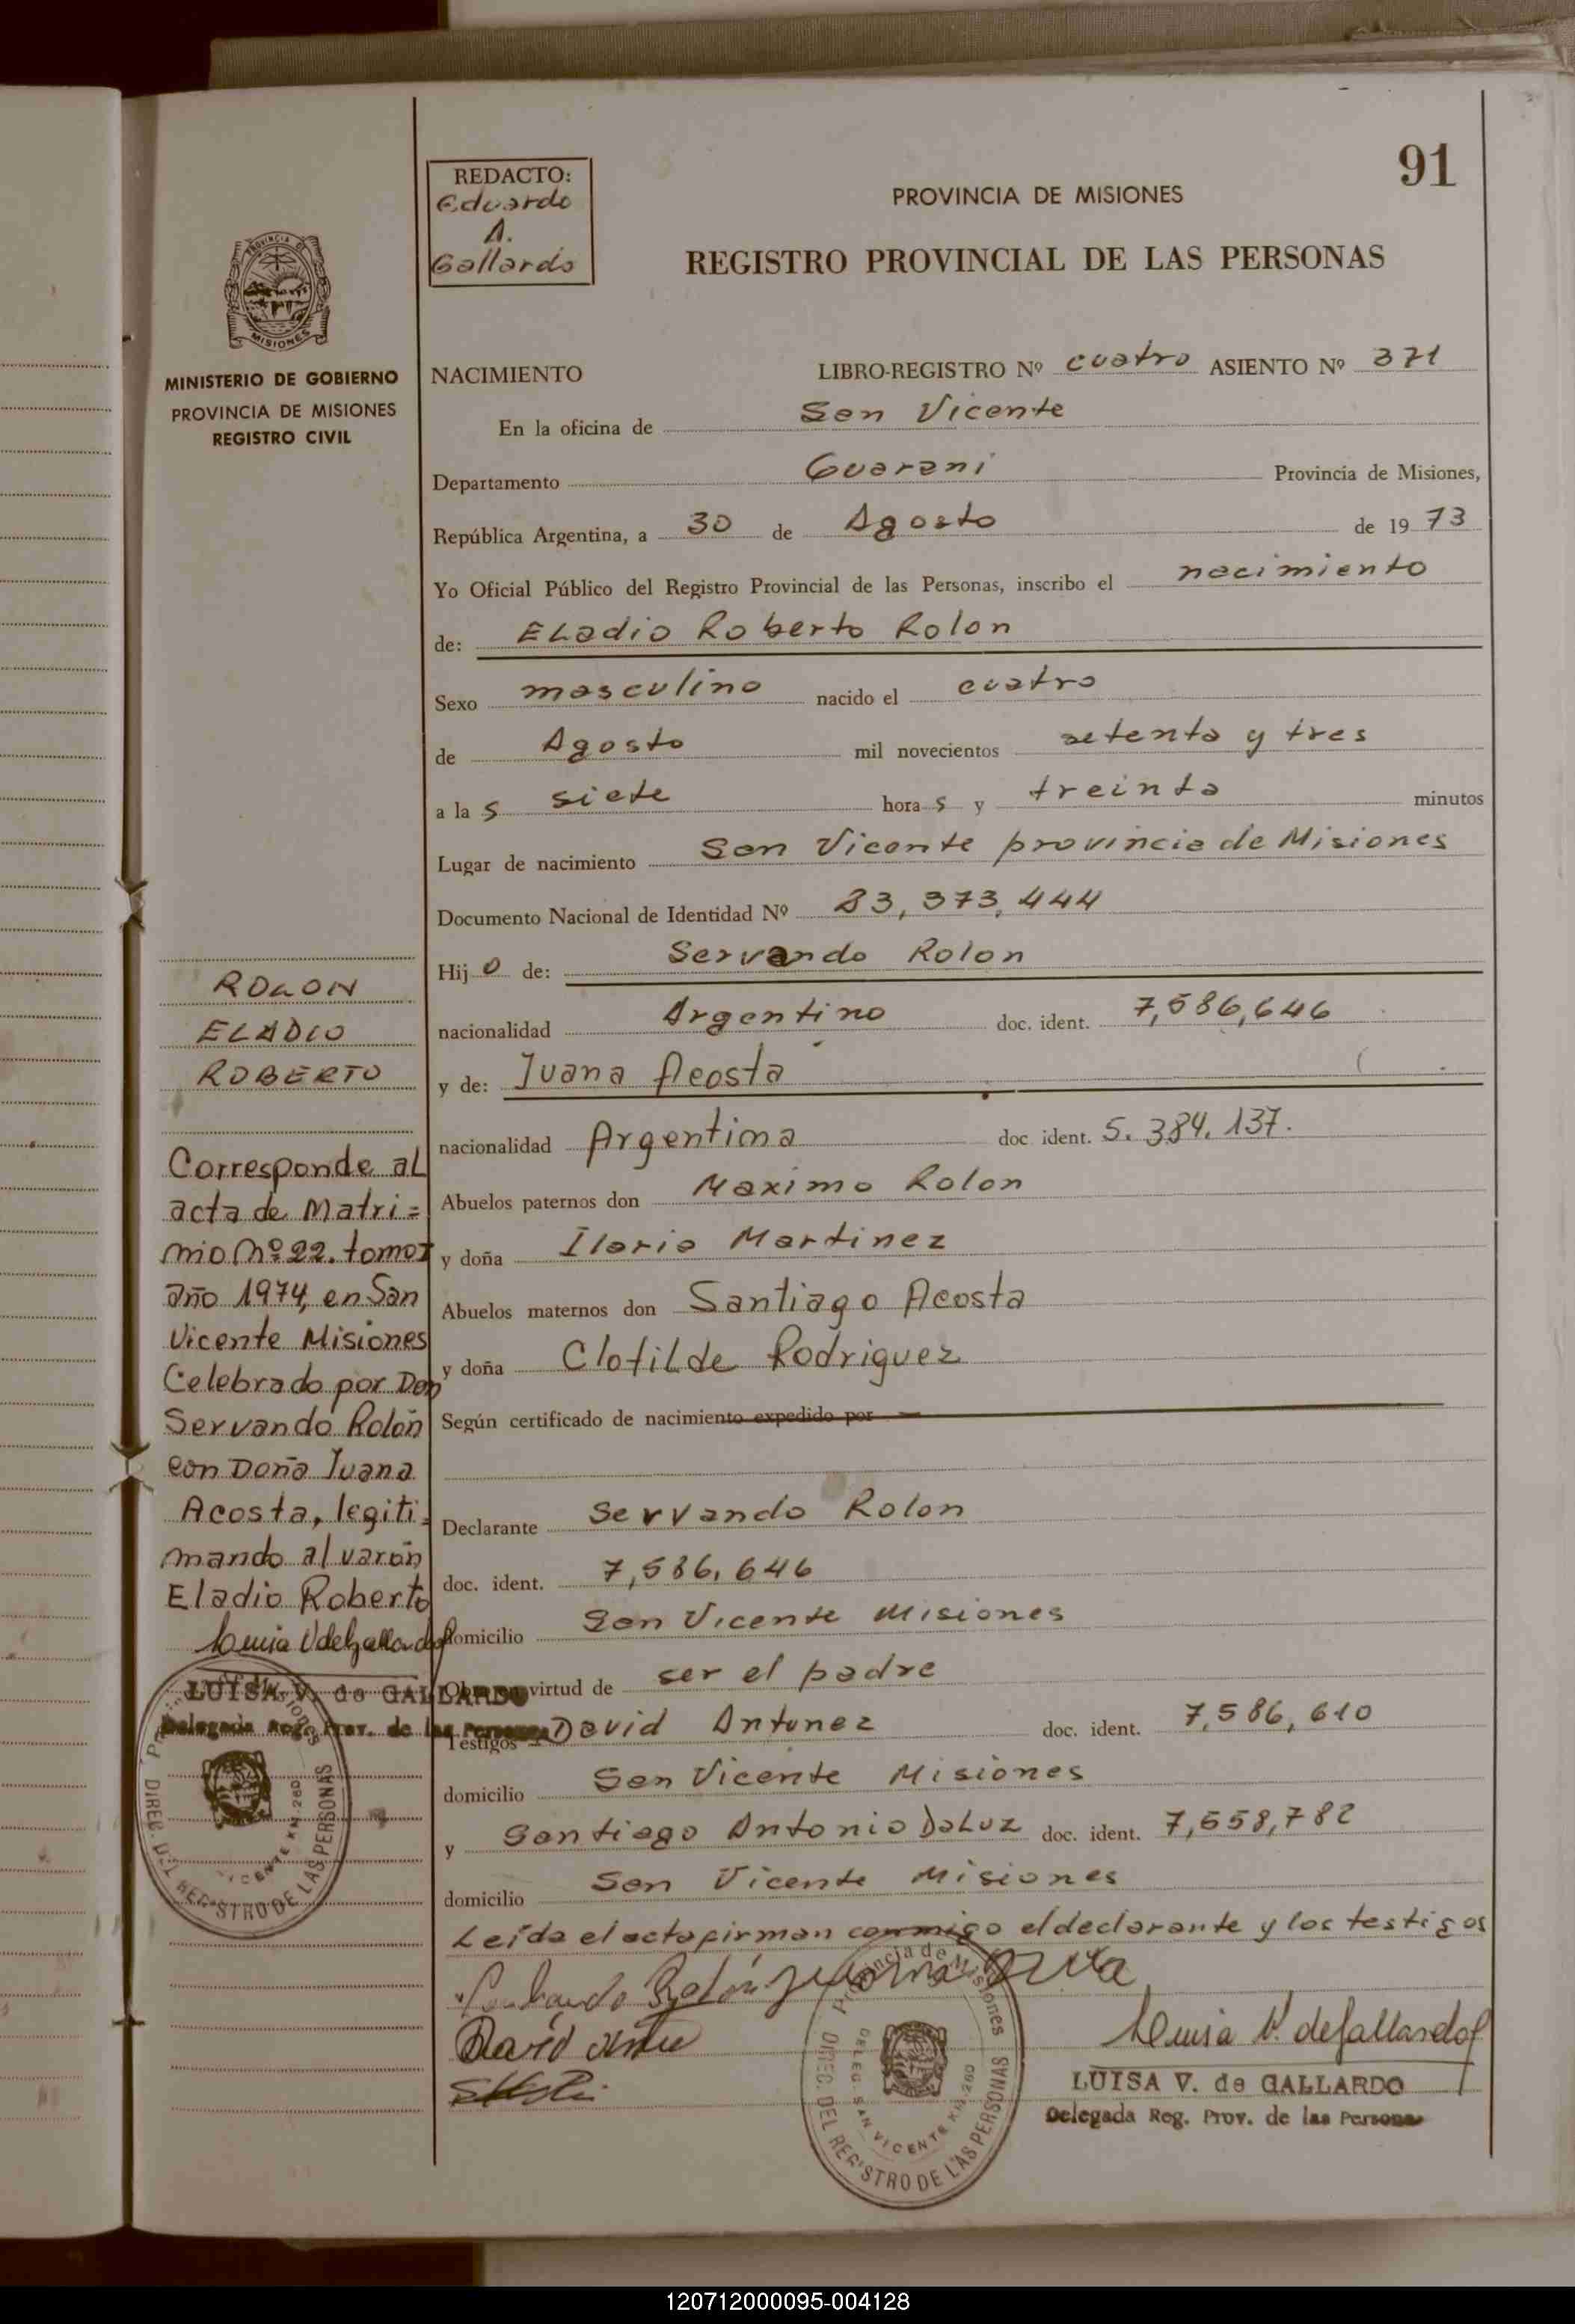 91
REDACTO:
Eduardo
A.
Gallardo
PROVINCIA DE MISIONES
REGISTRO PROVINCIAL DE LAS PERSONAS
PROVINCIA DE
MISIONES
MINISTERIO DE GOBIERNO
PROVINCIA DE MISIONES
REGISTRO CIVIL
NACIMIENTO LIBRO-REGISTRO Nº cuatro ASIENTO Nº 371
En la oficina de San Vicente
Departamento Guarani Provincia de Misiones,
República Argentina, a 30 de Agosto de 19 73
Yo Oficial Público del Registro Provincial de las Personas, inscribo el nacimiento
de: Eladio Roberto Rolon
Sexo masculino nacido el cuatro
de Agosto mil novecientos setenta y tres
a la s siete hora s y treinta minutos
Lugar de nacimiento San Vicente provincia de Misiones
Documento Nacional de Identidad Nº 23,373,444
Hij o de: Servando Rolon
nacionalidad Argentino doc. ident. 7,586,646
y de: Juana Acosta
nacionalidad Argentina doc ident. 5.384.137.
Abuelos paternos don Maximo Rolon
y doña Ilaria Martinez
Abuelos maternos don Santiago Acosta
y doña Clotilde Rodriguez
Según certificado de nacimiento expedido por
Declarante Servando Rolon
doc. ident. 7,586,646
domicilio San Vicente Misiones
virtud de ser el padre
Testigos David Antunez doc. ident. 7,586,610
domicilio San Vicente Misiones
y Santiago Antonio DaLuz doc. ident. 7,658,782
domicilio San Vicente Misiones
Leida el acta firman conmigo el declarante y los testigos
Luisa V. de Gallardo
LUISA V. de GALLARDO
Delegada Reg. Prov. de las Personas
Provincia de Misiones
DIREC. DEL REGISTRO DE LAS PERSONAS
DELEG. SAN VICENTE KM.260
ROLON
ELADIO
ROBERTO
Corresponde al
acta de Matri=
nio Nº 22. tomo I
año 1974, en San
Vicente Misiones
Celebrado por Don
Servando Rolón
con Doña Juana
Acosta, legiti=
mando al varón
Eladio Roberto
Luisa V de Gallardo
LUISA V. de GALLARDO
Delegada Reg. Prov. de las Personas
DIREC. DEL REGISTRO DE LAS PERSONAS
VICENTE KM.260
120712000095-004128